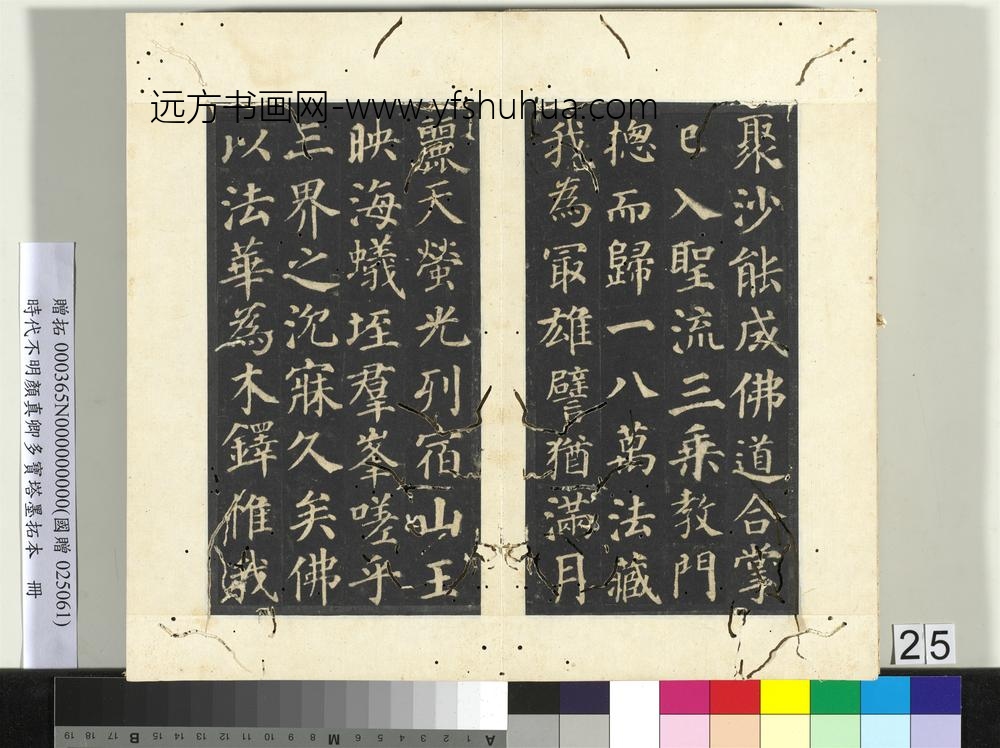 远方书画网-www.yfshuhua.com
聚沙能成佛道合掌
已入聖流三乘教門
揔而歸一八萬法藏
我為冣雄譬猶滿月
麗天螢光列宿山王
映海蟻垤羣峯嗟乎
三界之沉寐久矣佛
以法華為木鐸惟我
贈拓 000365N000000000(國贈 025061)
時代不明顏真卿多寶塔墨拓本 冊
25
19 18 17 B 16 15 14 13 12 11 10 9 8 M 7 6 5 4 3 2 1 A